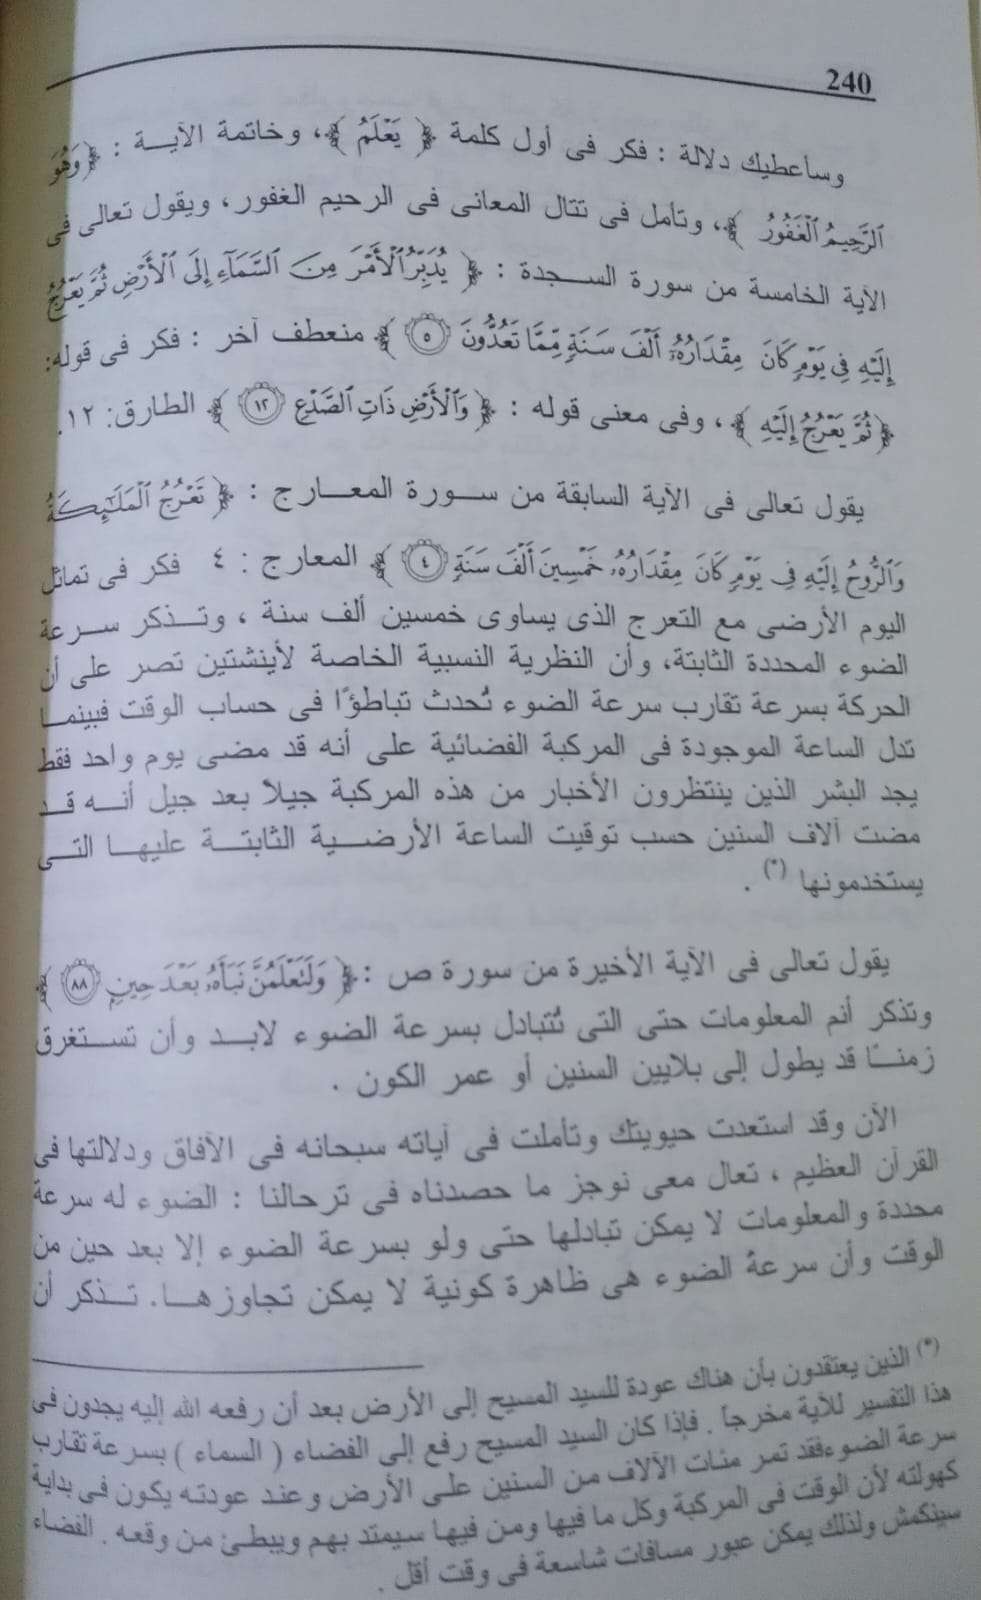 240
وسأعطيك دلالة : فكر فى أول كلمة ﴿ يَعْلَمُ ﴾، وخاتمة الآيــة : ﴿وَهُوَ
ٱلرَّحِيمُ ٱلْغَفُورُ ﴾، وتأمل فى تتال المعانى فى الرحيم الغفور، ويقول تعالى فى
الآية الخامسة من سورة السـجدة : ﴿ يُدَبِّرُ ٱلْأَمْرَ مِنَ ٱلسَّمَآءِ إِلَى ٱلْأَرْضِ ثُمَّ يَعْرُجُ
إِلَيْهِ فِى يَوْمٍ كَانَ مِقْدَارُهُۥٓ أَلْفَ سَنَةٍ مِّمَّا تَعُدُّونَ ٥ ﴾ منعطف آخر : فكر فى قوله:
﴿ ثُمَّ يَعْرُجُ إِلَيْهِ ﴾، وفى معنى قوله : ﴿ وَٱلْأَرْضِ ذَاتِ ٱلصَّدْعِ ١٢ ﴾ الطارق: ١٢.
يقول تعالى فى الآية السابقة من سـورة المعـارج : ﴿ تَعْرُجُ ٱلْمَلَٰٓئِكَةُ
وَٱلرُّوحُ إِلَيْهِ فِى يَوْمٍ كَانَ مِقْدَارُهُۥ خَمْسِينَ أَلْفَ سَنَةٍ ٤ ﴾ المعارج : ٤ فكر فى تماثل
اليوم الأرضى مع التعرج الذى يساوى خمسين ألف سنة ، وتـذكر سـرعة
الضوء المحددة الثابتة، وأن النظرية النسبية الخاصة لأينشتين تصر على أن
الحركة بسرعة تقارب سرعة الضوء تُحدث تباطؤًا فى حساب الوقت فبينمـا
تدل الساعة الموجودة فى المركبة الفضائية على أنه قد مضى يوم واحد فقط
يجد البشر الذين ينتظرون الأخبار من هذه المركبة جيلاً بعد جيل أنـه قـد
مضت آلاف السنين حسب توقيت الساعة الأرضـية الثابتـة عليهـا التـى
يستخدمونها (*) .
يقول تعالى فى الآية الأخيرة من سورة ص : ﴿ وَلَتَعْلَمُنَّ نَبَأَهُۥ بَعْدَ حِينٍۭ ٨٨ ﴾
وتذكر أنم المعلومات حتى التى تُتبادل بسرعة الضوء لابـد وأن تسـتغرق
زمنـًا قد يطول إلى بلايين السنين أو عمر الكون .
الآن وقد استعدت حيويتك وتأملت فى آياته سبحانه فى الآفاق ودلالتها فى
القرآن العظيم ، تعال معى نوجز ما حصدناه فى ترحالنا : الضوء له سرعة
محددة والمعلومات لا يمكن تبادلها حتى ولو بسرعة الضوء إلا بعد حين من
الوقت وأن سرعة الضوء هى ظاهرة كونية لا يمكن تجاوزهـا. تـذكر أن
(*) الذين يعتقدون بأن هناك عودة للسيد المسيح إلى الأرض بعد أن رفعه الله إليه يجدون فى
هذا التفسير للآية مخرجاً . فإذا كان السيد المسيح رفع إلى الفضاء ( السماء ) بسرعة تقارب
سرعة الضوء فقد تمر مئات الآلاف من السنين على الأرض وعند عودته يكون فى بداية
كهولته لأن الوقت فى المركبة وكل ما فيها ومن فيها سيمتد بهم ويبطئ من وقعه . الفضاء
سينكمش ولذلك يمكن عبور مسافات شاسعة فى وقت أقل .